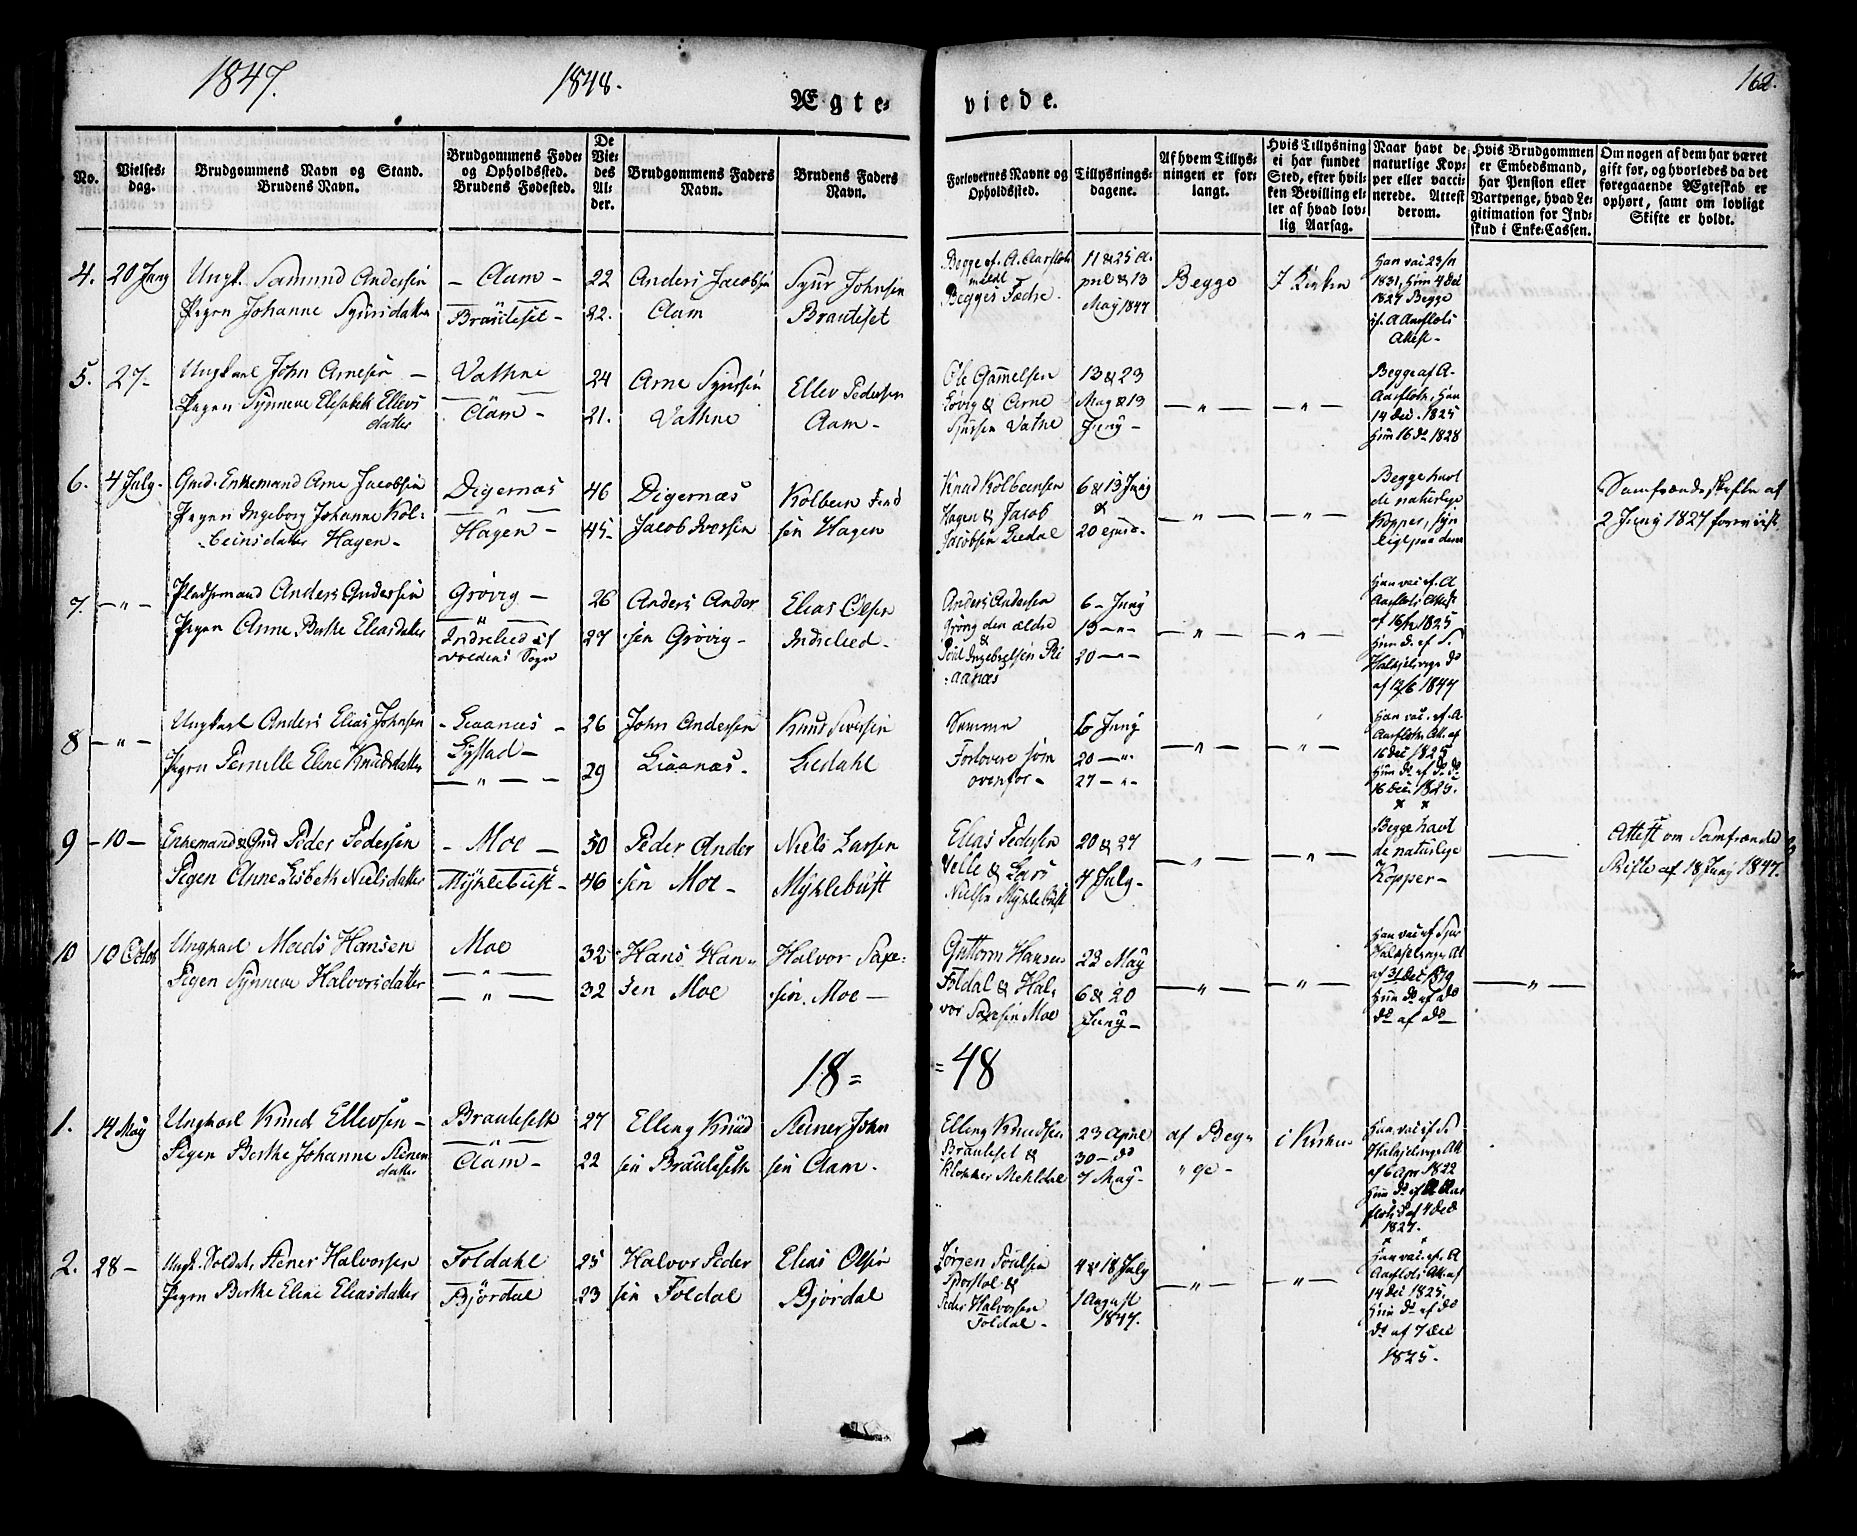 1847.
1848.
162.
Ægte= viede.
No.
Vielses=
dag.
Brudgommens Navn og Stand.
Brudens Navn.
Brudgommens Føde=
og Opholdssted.
Brudens Fødested.
De
Vie=
des
Al=
der.
Brudgommens Faders
Navn.
Brudens Faders
Navn.
Forlovernes Navne og
Opholdssted.
Tillysnings=
dagene.
Af hvem Tillys=
ningen er for=
langt.
Hvis Tillysning
ei har fundet
Sted, efter hvil=
ken Bevilling el=
ler af hvad lov=
lig Aarsag.
Naar havt de
naturlige Kop=
per eller vacci=
nerede. Attest
derom.
Hvis Brudgommen
er Embedsmand,
har Pension eller
Vartpenge, hvad Le=
gitimation for Ind=
skud i Enke=Cassen.
Om nogen af dem har været
gift før, og hvorledes da det
foregaaende Ægteskab er
ophørt, samt om lovligt
Skifte er holdt.
4. 20 Juny
Ungk. Samund Andersen
Pigen Johanne Sjursdatter
- Aam -
Brauteset -
22
22.
Anders Jacobsen
Aam
Sjur Johnsen
Brauteset
Begge af A. Aarflots
Begges Fædre.
11 & 25 A-
pril & 13
May 1847
Begge
I Kirken
Han vac 23/11
1831, Hun 4 Dec
1827 Begge
ef. A Aarflots
Attest -
5. 27 -
Ungkarl John Arnesen -
Pigen Synneve Elisabeth Ellevs
datter
Vathne
Aam -
24
21.
Arne Sjursen
Vathne
Ellev Pedersen
Aam -
Ole Gammelsen
Grövig & Arne
Sjursen Vatne
13 & 23
May & 13
Juny -
- " -
- " -
Begge af A-
Aarflots, Han
14 Dec. 1825
Hun 16 do 1828
6. 4 July.
Gmd. Enkemand Arne Jacobsen
Pigen Ingeborg Johanne Kol-
beinsdatter Hagen -
Digernæs
Hagen -
46
45 -
Digernæs
Jacob Iversen
Kolbeen Knud
sen Hagen
Knud Kolbeensen
Hagen & Jacob
Jacobsen Liedal
6 & 13 Juny
&
20 ejusd -
- " -
- " -
Begge havt
de naturlige
Kopper, syn
ligt paa dem
Samfrændeskifte af
2 Juny 1827 forevist
7. - " -
Pladsemand Anders Andersen
Pigen Anne Berthe Eliasdatter
Grövig -
Indrelied af
Voldens Sogn
26
27
Anders Ander
sen Grövig -
Elias Olsen
Indrelied -
Anders Andersen
Grövig den ældre
&
Poul Ingebrigtsen Ri
aanæs
6 - Juny
13 - " -
20 - " -
- " -
- " -
Han vac ef. A
Aarflots Attest
af 16/12 1825
Hun do. af S.
Halkjelsvigs do
af 12/6 1847
8 - " -
Ungkarl Anders Elias Johnsen
Pigen Pernille Eline Knudsdatter
- Liaanæs -
Lystad -
- " -
26
29
John Andersen
Liaanæs -
Knud Iversen
Liedahl
Samme
Forlovere som
ovenfor -
6 Juny
20 - " -
27 - " -
- " -
- " -
Han vac. ef. A
Aarflots At. af
16 dec 1825
Hun do af do do
16 dec. 1825.
9 - 10 -
Enkemand & Gmd Peder Pedersen
Pigen Anne Lisbeth Nielsdatter
- Moe -
Myklebust -
50
46
Peder Ander
sen Moe -
Niels Larsen
Myklebust
Elias Pedersen
Velle & Lars
Nielsen Myklebust
20 & 27
4 July -
- " -
- " -
Begge havt
de naturlige
Kopper -
Attest om Samfrænde
Skifte af 18 Juny 1847.
10 10 Octob
Ungkarl Mads Hansen
Pigen Synneve Halvorsdatter
Moe
- " -
32
32
Hans Han-
sen Moe
Halvor Saxe-
sen. Moe -
Guttorm Hansen
Foldal & Hal-
vor Saxesen Moe
23 May
6 & 20
Juny -
- " -
- " -
Han vac ef Sjur
Halkjelsvigs At
af 31 Dec 1819
Hun do af do
do af do
- " -
18= =48
1. 14 May
Ungkarl Knud Ellevsen -
Pigen Berthe Johanne Steners
datter
Brauteseth
Aam -
27
22
Elling Knud
sen Brauteseth
Steiner John
sen Aam -
Elling Knudsen
Brauteset &
Klokker Mehldal
23 April
30 - do
7 May -
af Beg-
" ge -
i Kirken
Han vac ef S
Halkjelsvigs At
af 6 Apr 1822
Hun do ef A Aar
flots do af 4 Dec
1827.
2. 28 -
Ungk. Soldat, Stener Halvorsen
Pigen Berthe Eline Eliasdatter
Foldahl
Bjørdal
25
23
Halvor Peder
sen Foldal
Elias Olsen
Bjørdal
Jørgen Poulsen
&
Peder Halvorsen
Foldal -
4 & 18 July
1 August
1847.
- " -
- " -
Han vac. ef. A
Aarflots At. af
14 dec 1825.
Hun do af do
do af 7 Dec
1825.